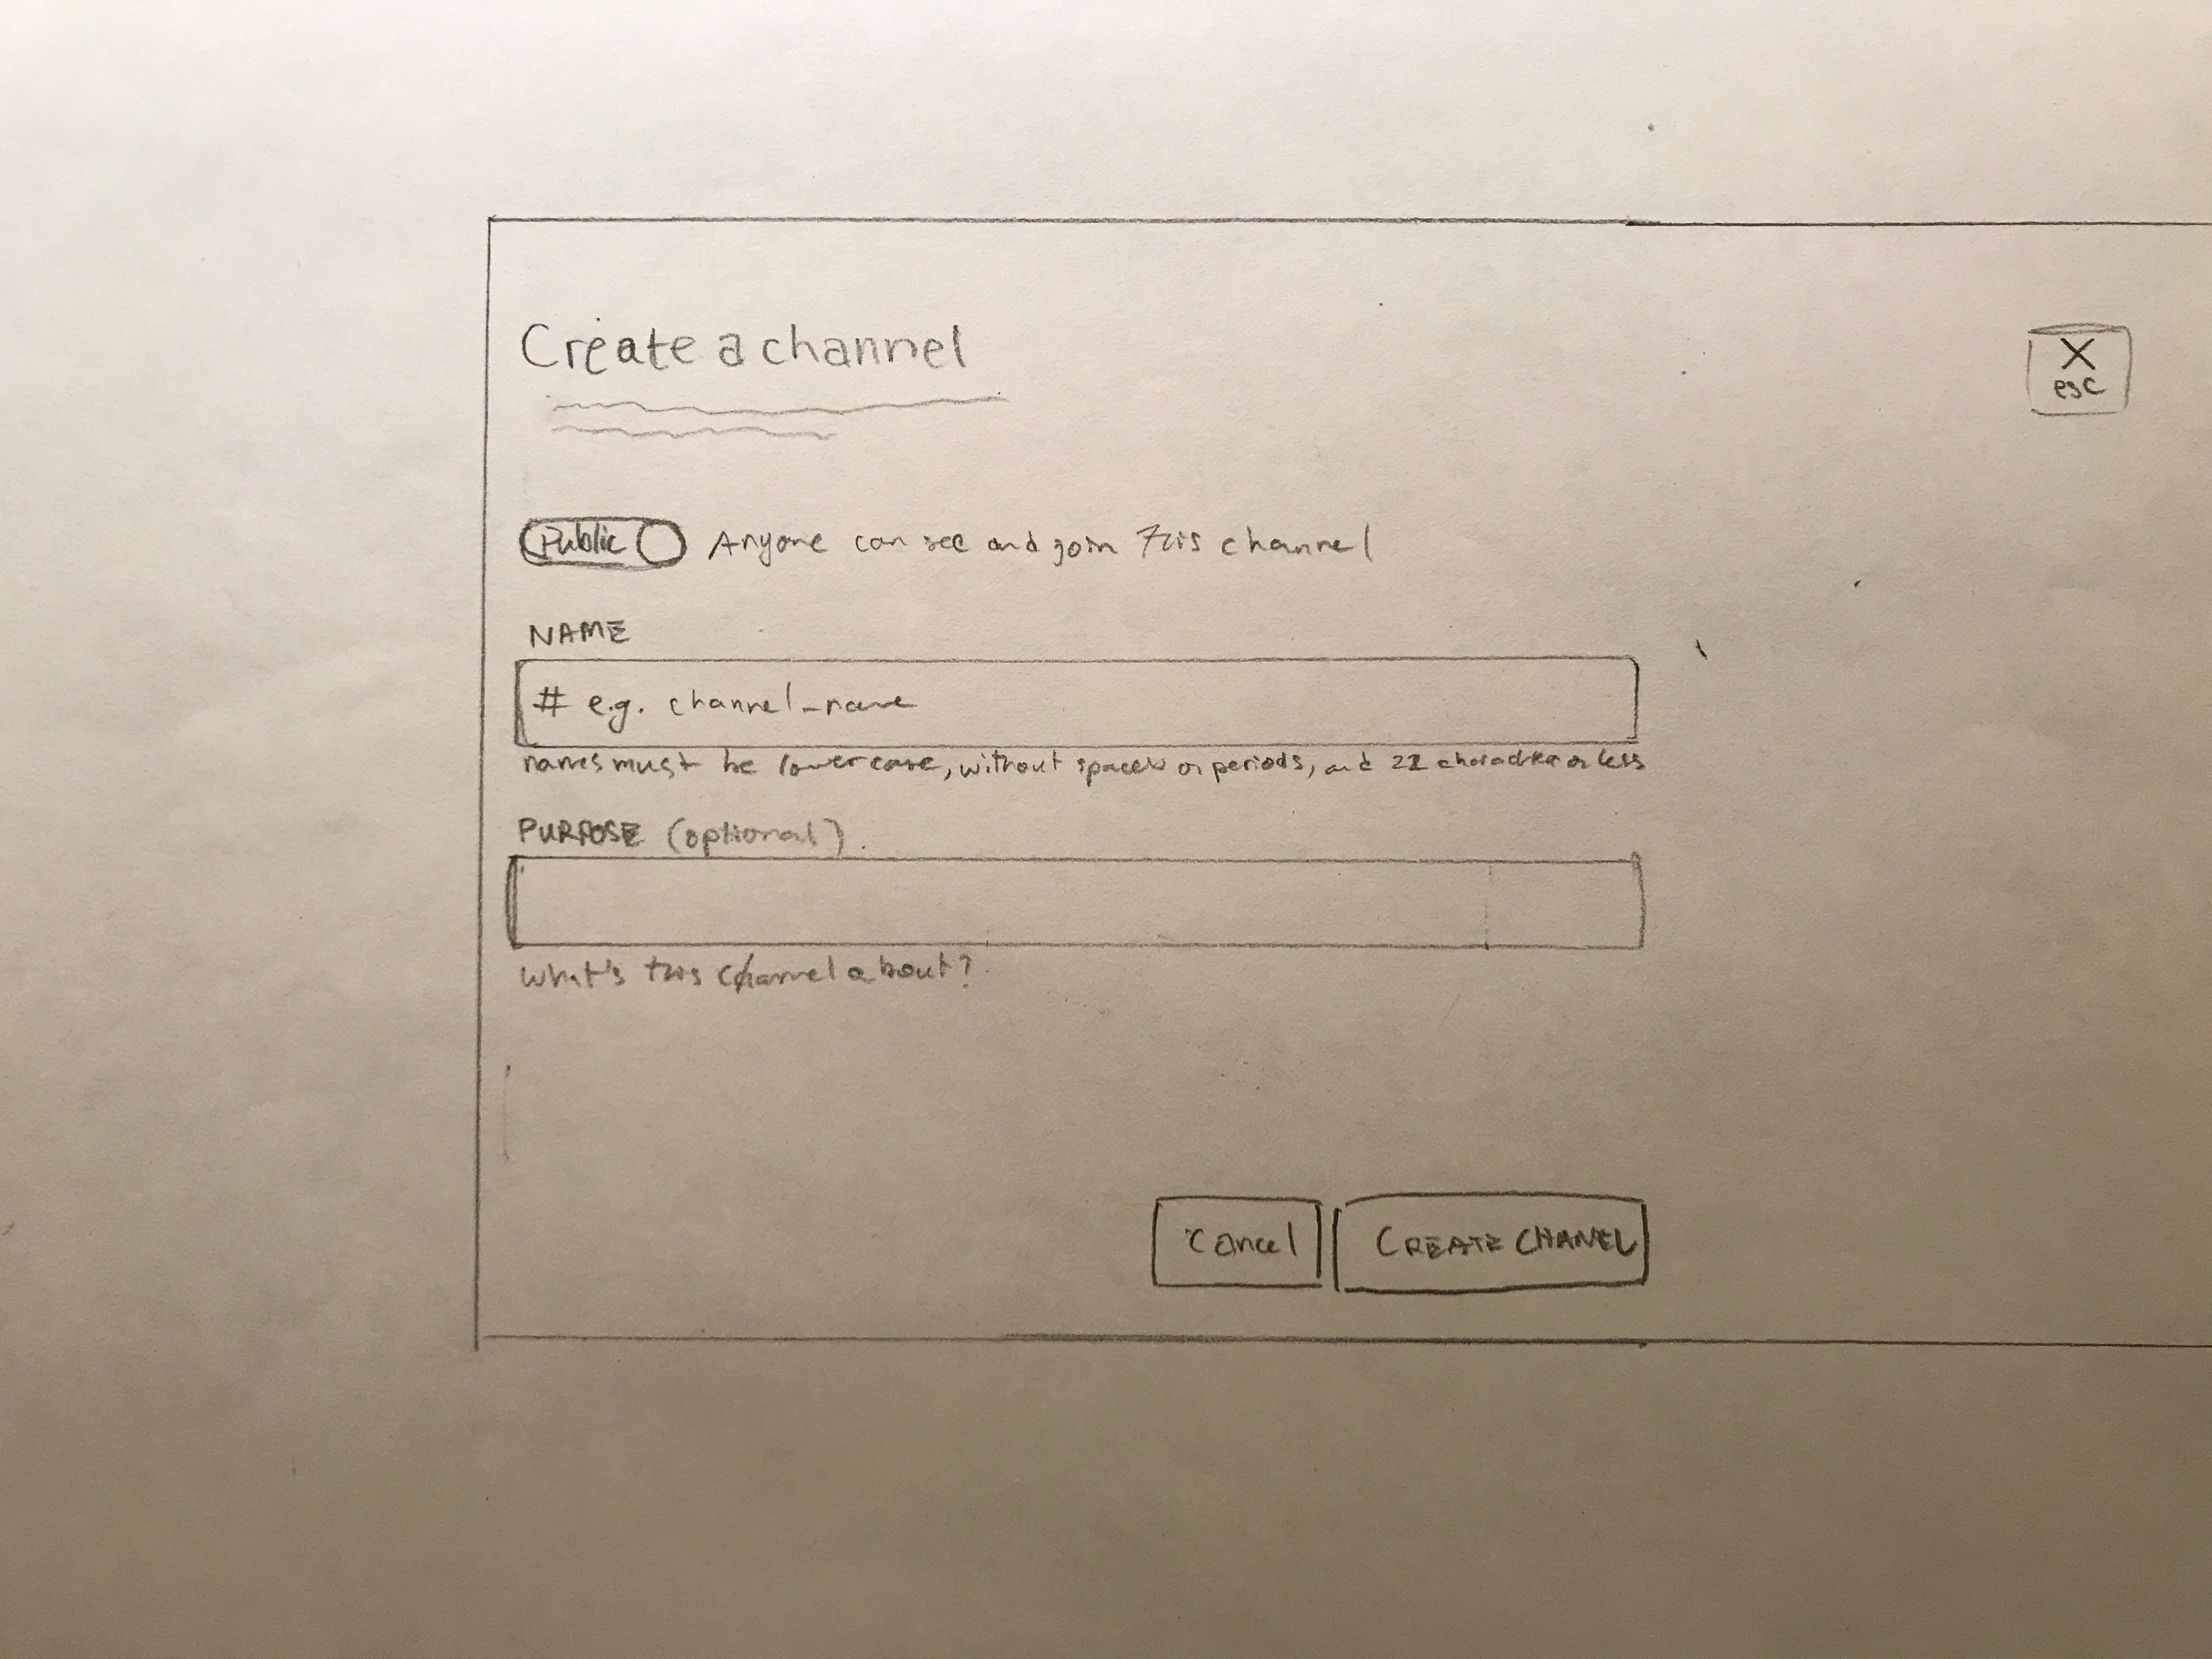 Create a channel
X
esc
Public Anyone can see and join this channel
NAME
# e.g. channel_name
names must be lowercase, without spaces or periods, and 22 characters or less
PURPOSE (optional)
What's this channel about?
Cancel CREATE CHANEL